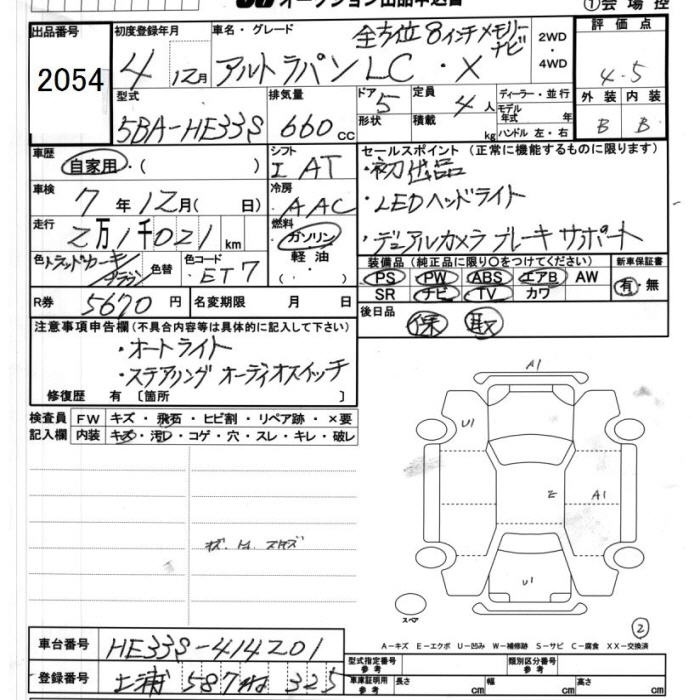 オークション出品申込書
①会場控
出品番号
2054
初度登録年月
4 12月
車名・グレード
全方位8インチメモリーナビ
アルトラパンLC・X
2WD・4WD
評価点
4.5
外装 内装
B B
型式
5BA-HE33S
排気量
660cc
ドア 5
形状
定員 4人
積載 kg
ディーラー・並行
モデル年式 年
ハンドル 左・右
車歴
自家用・( )
シフト
I AT
車検
7年12月( 日)
冷房
AAC
走行
2万1千021km
燃料
ガソリン
軽油
( ・ )
色 トラッドカーキ/ブラウン
色替
色コード
ET7
R券 5670円
名変期限 月 日
セールスポイント(正常に機能するものに限ります)
・初出品
・LEDヘッドライト
・デュアルカメラブレーキサポート
装備品(純正品に限り○をつけてください)
PS PW ABS エアB AW
SR ナビ TV カワ
新車保証書
有・無
後日品
保 取
注意事項申告欄(不具合内容等は具体的に記入して下さい)
・オートライト
・ステアリングオーディオスイッチ
修復歴 有 〔箇所 〕
検査員記入欄
FW キズ・飛石・ヒビ割・リペア跡・×要
内装 キズ・汚れ・コゲ・穴・スレ・キレ・破レ
A1
U1
E
A1
U1
スペア
2
A-キズ E-エクボ U-凹み W-補修跡 S-サビ C-腐食 XX-交換済
車台番号 HE33S-414201
登録番号 土浦 587 325
型式指定番号参考
類別区分番号参考
車庫証明用参考 長さ cm 幅 cm 高さ cm